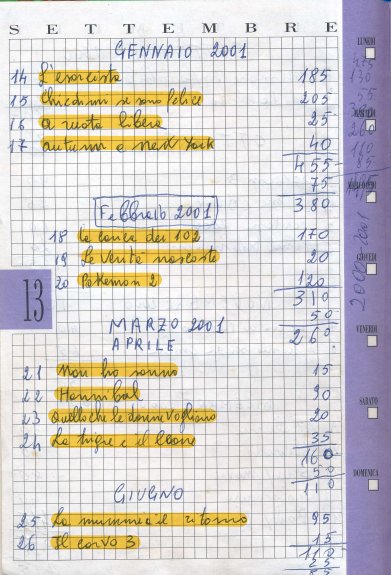 SETTEMBRE
GENNAIO 2001
14 L'esorcista 185
15 Chiedimi se sono felice 205
16 a ruota libera 25
17 autumn a new York 40
455
75
380
Febbraio 2001
18 la carica dei 102 170
19 Le verità nascoste 20
20 Pokemon 2 120
310
50
260
13
MARZO 2001
APRILE
21 Non ho sonno 15
22 Hannibal 90
23 Quello che le donne vogliono 20
24 La tigre e il
35
160
50
110
GIUGNO
25 La mummia il ritorno 95
26 Il corvo 3 15
110
LUNEDÌ
MARTEDÌ
MERCOLEDÌ
GIOVEDÌ
VENERDÌ
SABATO
DOMENICA
2000-2001